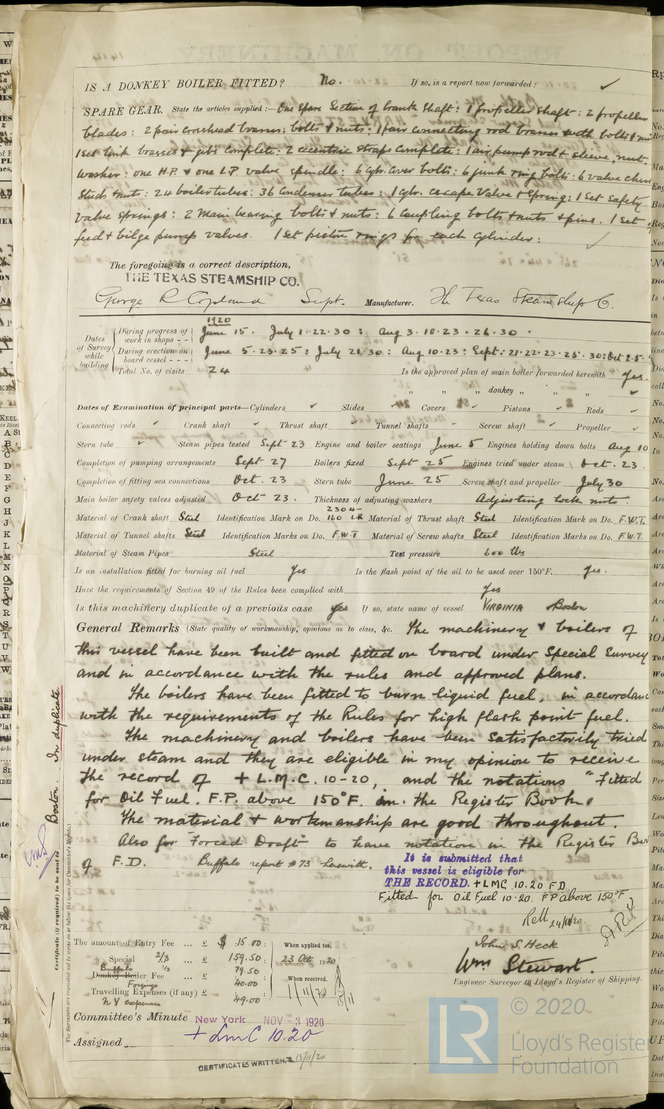 IS A DONKEY BOILER FITTED? No. If so, is a report now forwarded? ✓
SPARE GEAR. State the articles supplied:— One Spare Section of Crank Shaft: 1 propeller shaft: 2 propeller
blades: 2 pair crosshead brasses, bolts & nuts: 1 pair connecting rod brasses with bolts & nuts
1 Set link brasses & gibs complete: 2 eccentric straps complete: 1 air pump rod & sleeve, nut
washer: one H.P. & one L.P. valve spindle: 6 cyl. cover bolts: 6 junk ring bolts: 6 valve chest
Studs & nuts: 24 boiler tubes: 36 Condenser tubes: 1 cyl. escape Valve & Spring: 1 Set safety
valve springs: 2 Main bearing bolts & nuts: 6 Coupling bolts & nuts & pins. 1 Set
feed & bilge pump valves. 1 Set piston rings for each cylinder: ✓
The foregoing is a correct description,
THE TEXAS STEAMSHIP CO.
George R Copeland Supt. Manufacturer. The Texas Steamship Co.
1920
Dates of Survey while building
During progress of work in shops - - June 15. July 1. 22. 30: Aug 3. 18. 23. 26. 30.
During erection on board vessel - - - June 5. 23. 25: July 21. 30: Aug. 10. 23: Sept: 21. 22. 23. 25. 30: Oct 2. 5.
Total No. of visits 24 Is the approved plan of main boiler forwarded herewith Yes
" " " donkey " " " ✓
Dates of Examination of principal parts—Cylinders ✓ Slides Covers Pistons Rods ✓
Connecting rods ✓ Crank shaft ✓ Thrust shaft Tunnel shafts Screw shaft Propeller ✓
Stern tube Steam pipes tested Sept 23 Engine and boiler seatings June 5 Engines holding down bolts Aug 10
Completion of pumping arrangements Sept 27 Boilers fixed Sept 25 Engines tried under steam Oct. 23
Completion of fitting sea connections Oct. 23 Stern tube June 25 Screw shaft and propeller July 30
Main boiler safety valves adjusted Oct 23. Thickness of adjusting washers Adjusting lock nuts.
Material of Crank shaft Steel Identification Mark on Do. 2304- 160 LR Material of Thrust shaft Steel Identification Mark on Do. F.W.T.
Material of Tunnel shafts Steel Identification Marks on Do. F.W.T Material of Screw shafts Steel Identification Marks on Do. F.W.T.
Material of Steam Pipes Steel Test pressure 600 lbs
Is an installation fitted for burning oil fuel Yes Is the flash point of the oil to be used over 150°F. Yes.
Have the requirements of Section 49 of the Rules been complied with Yes
Is this machinery duplicate of a previous case Yes If so, state name of vessel VIRGINIA Boston
General Remarks (State quality of workmanship, opinions as to class, &c. The machinery & boilers of
this vessel have been built and fitted on board under Special Survey
and in accordance with the rules and approved plans.
The boilers have been fitted to burn liquid fuel, in accordance
with the requirements of the Rules for high flash point fuel.
The machinery and boilers have been satisfactorily tried
under steam and they are eligible in my opinion to receive
the record of + L.M.C. 10-20, and the notations "Fitted
for Oil Fuel. F.P. above 150°F. in the Register Book.
The material & workmanship are good throughout.
Also for "Forced Draft" to have notation in the Register Book
of F.D. Buffalo report # 73 herewith.
It is submitted that
this vessel is eligible for
THE RECORD. + LMC 10.20 FD
Fitted for Oil Fuel 10.20. FP above 150°F.
John S. Heck
Wm Stewart.
Engineer Surveyor to Lloyd's Register of Shipping.
The amount of Entry Fee ... £ $ 15.00: When applied for,
Special 2/3 ... £ 159.50: 23 Oct 1920
Buffalo 1/3 79.50
Donkey Boiler Fee ... £ When received,
Forgings 40.00
Travelling Expenses (if any) £ 11/11/20
N Y expenses 49.00
Committee's Minute New York NOV - 3 1920
Assigned + LMC 10.20
CERTIFICATES WRITTEN. 15/11/20
Certificate (if required) to be sent to Boston. In duplicate
© 2020
LR Lloyd's Register
Foundation